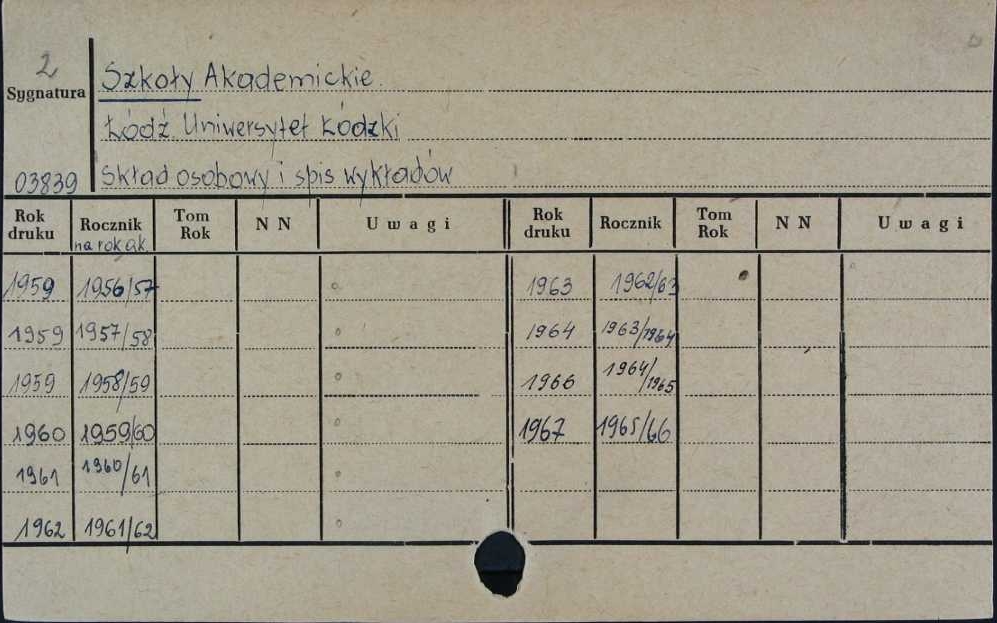 2
Szkoły Akademickie.
Sygnatura
Łódź. Uniwersytet Łódzki
03839 Skład osobowy i spis wykładów
Rok druku Rocznik na rok ak. Tom Rok N N U w a g i Rok druku Rocznik Tom Rok N N U w a g i
1959 1956/57 1963 1962/63
1959 1957/58 1964 1963/1964
1959 1958/59 1966 1964/1965
1960 1959/60 1967 1965/66
1961 1960/61
1962 1961/62